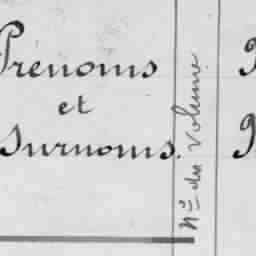 Prénoms
et
Surnoms.
Nº du volume